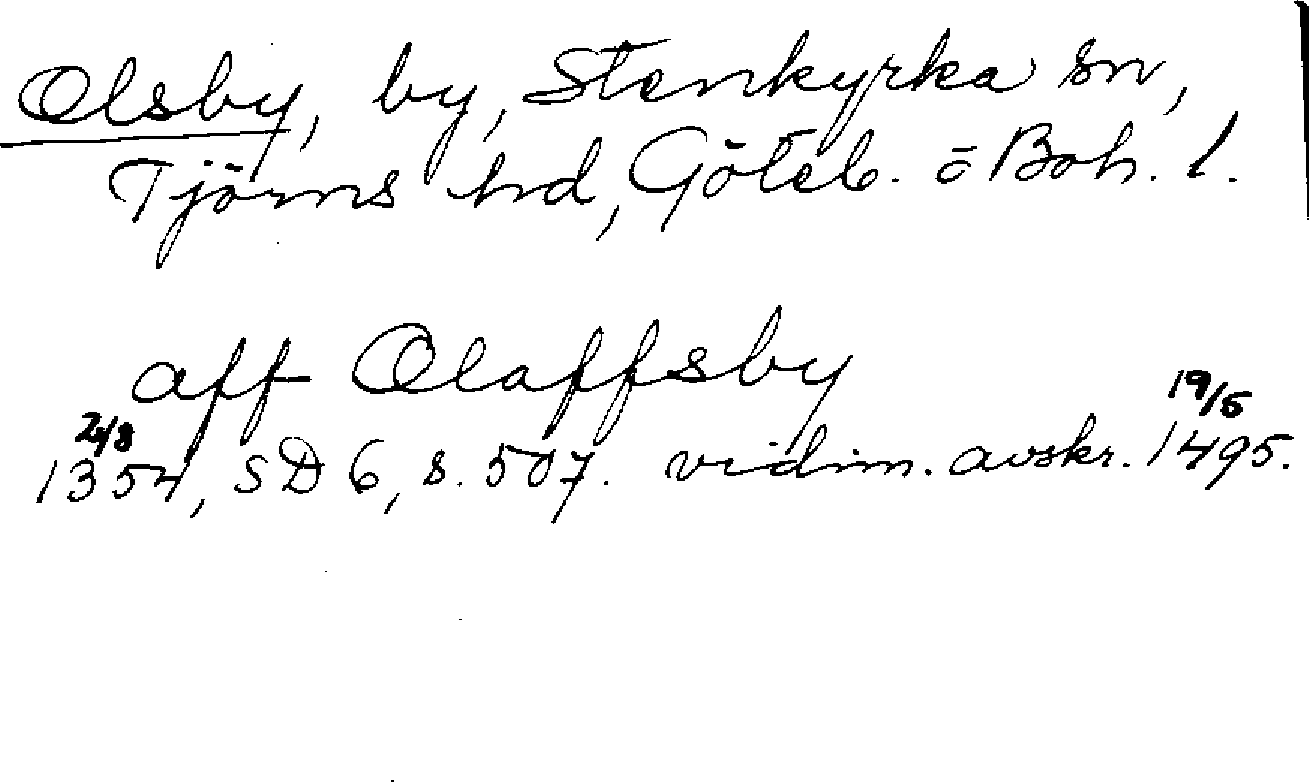 Olsby, by, Stenkyrka sn,
Tjörns hd, Göteb. o Boh. l.
aff Olaffsby
19/5
1354, SD 6, s. 507. vidim. avskr. 1495.